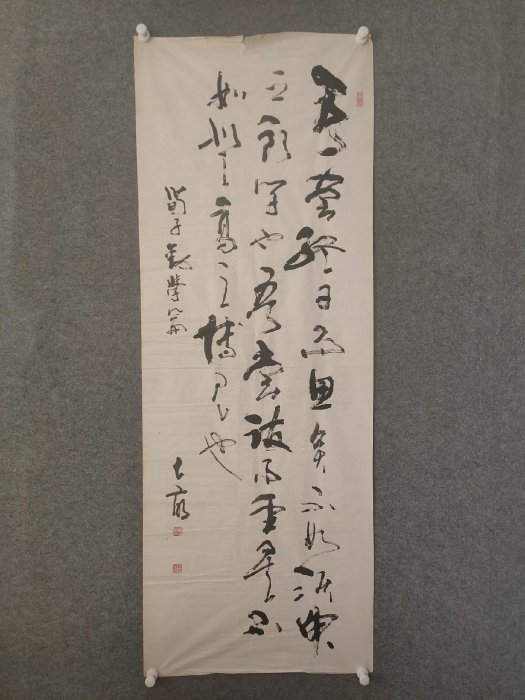 吾嘗終日而思矣不如須臾
之所學也吾嘗跂而望矣不
如登高之博見也
荀子勸學篇